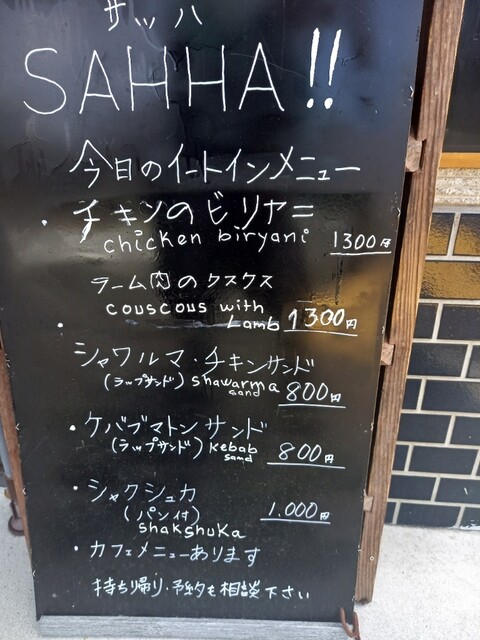 サッハ
SAHHA!!
今日のイートインメニュー
・チキンのビリヤニ
chicken biryani 1300円
ラーム肉のクスクス
couscous with
Lamb 1300円
・シャワルマ・チキンサンド
(ラップサンド) shawarma sand 800円
・ケバブマトンサンド
(ラップサンド) kebab sand 800円
・シャクシュカ
(パン付) 1.000円
shakshuka
・カフェメニューあります
持ち帰り・予約も相談下さい